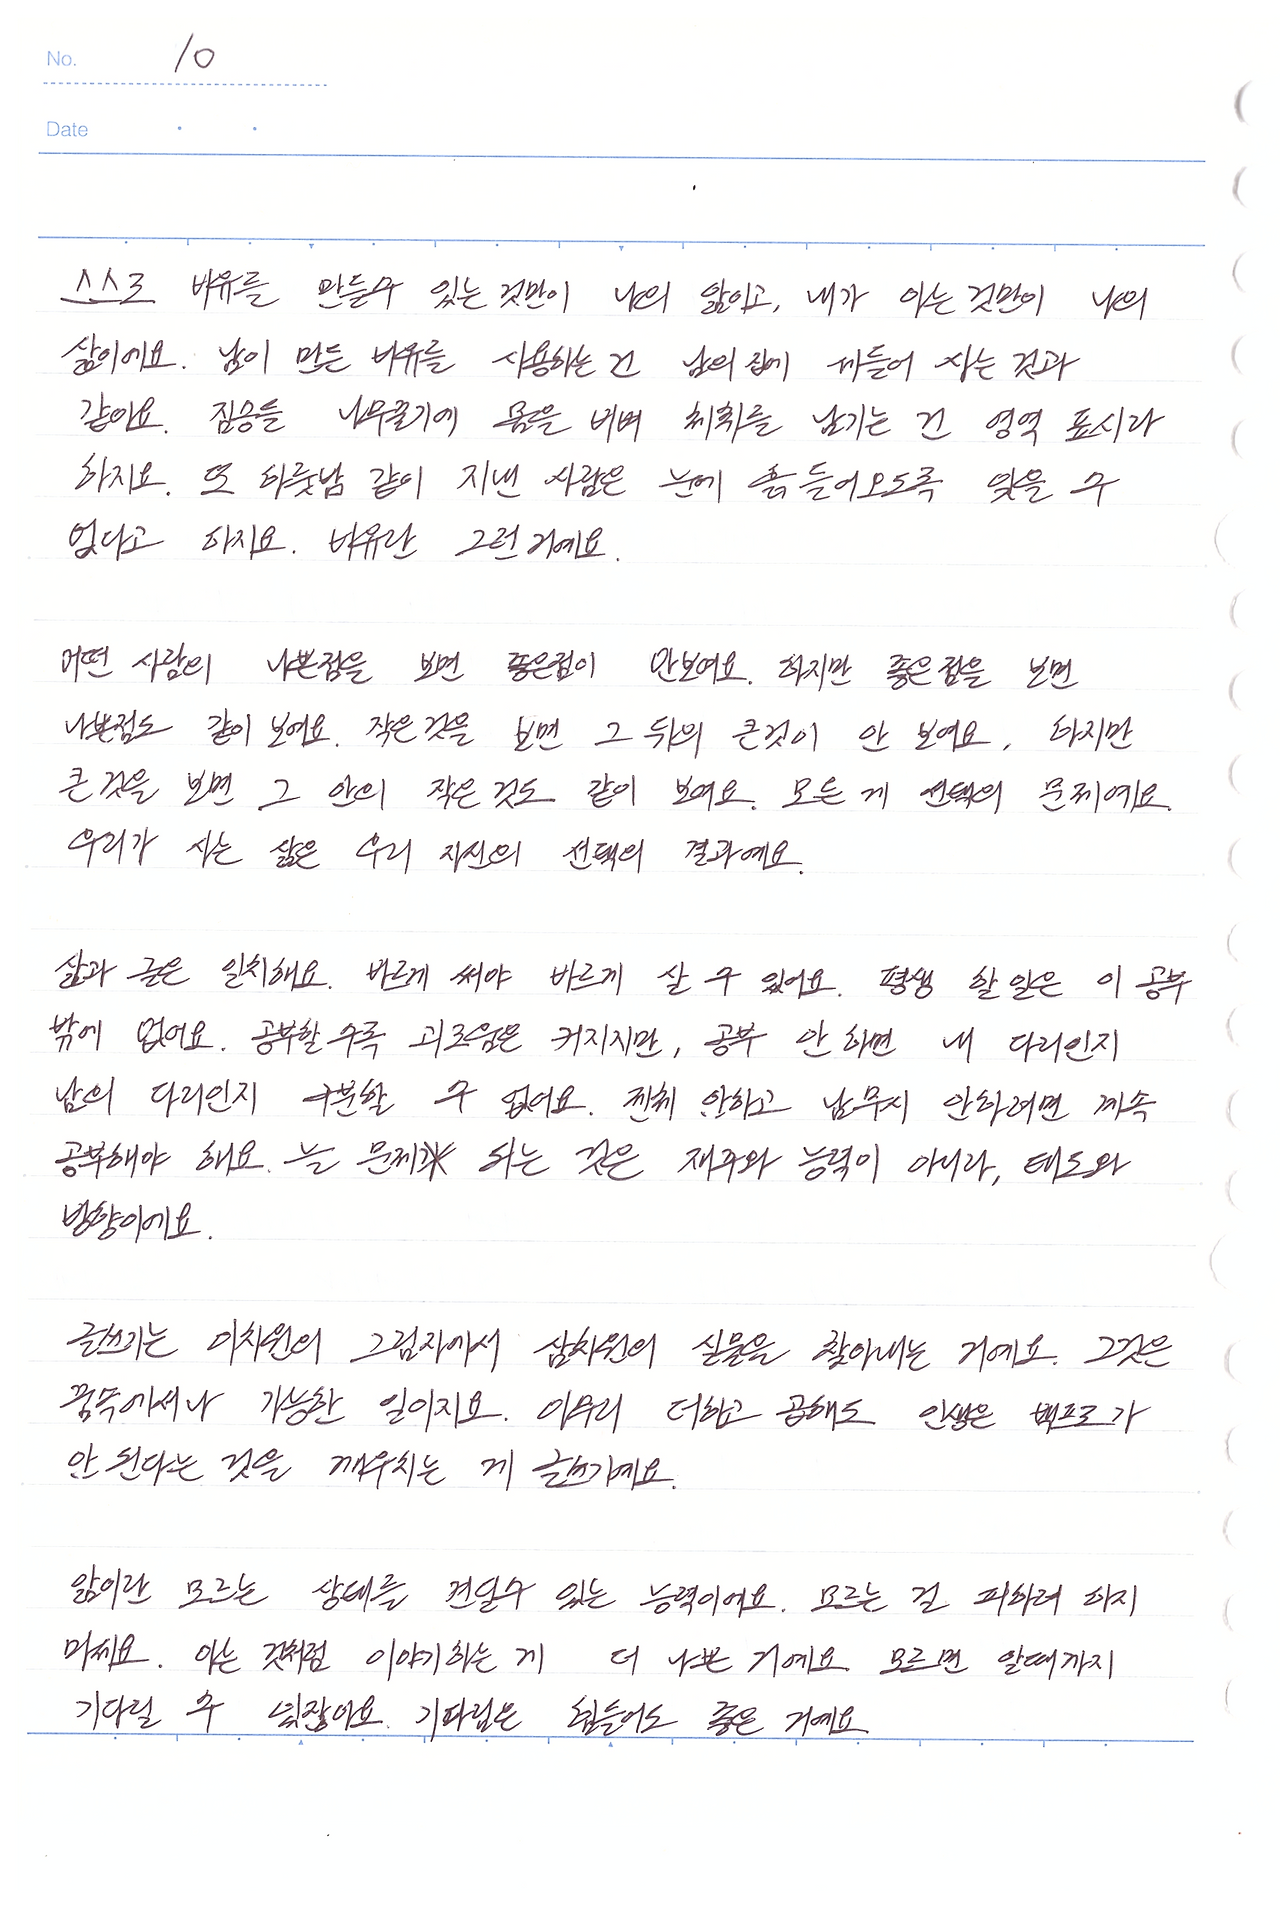 No. 10
Date
스스로 비유를 만들수 있는 것만이 나의 앎이고, 내가 아는 것만이 나의
삶이에요. 남이 만든 비유를 사용하는 건 남의 집에 세들어 사는 것과
같아요. 짐승들 나무줄기에 몸을 비벼 체취를 남기는 건 영역 표시라
하지요. 또 하룻밤 같이 지낸 사람은 눈에 흙 들어오도록 잊을 수
없다고 하지요. 비유란 그런 거예요.
어떤 사람의 나쁜점을 보면 좋은점이 안보여요. 하지만 좋은점을 보면
나쁜점도 같이 보여요. 작은것을 보면 그 뒤의 큰것이 안 보여요. 하지만
큰것을 보면 그 안의 작은것도 같이 보여요. 모든 게 선택의 문제예요.
우리가 사는 삶은 우리 자신의 선택의 결과예요.
삶과 글은 일치해요. 바르게 써야 바르게 살 수 있어요. 평생 할 일은 이 공부
밖에 없어요. 공부할수록 괴로움은 커지지만, 공부 안 하면 내 다리인지
남의 다리인지 구분할 수 없어요. 전체 안하고 남무시 안하려면 계속
공부해야 해요. 늘 문제가 되는 것은 재주와 능력이 아니라, 태도와
방향이에요.
글쓰기는 이차원의 그림자에서 삼차원의 실물을 찾아내는 거예요. 그것은
꿈속에서나 가능한 일이지요. 아무리 더하고 곱해도 인생은 백프로가
안 된다는 것을 깨우치는 게 글쓰기예요.
앎이란 모르는 상태를 견딜수 있는 능력이예요. 모르는 걸 피하려 하지
마세요. 아는 것처럼 이야기하는 게 더 나쁜 거예요. 모르면 알때까지
기다릴 수 있잖아요. 기다림은 힘들어도 좋은 거예요.